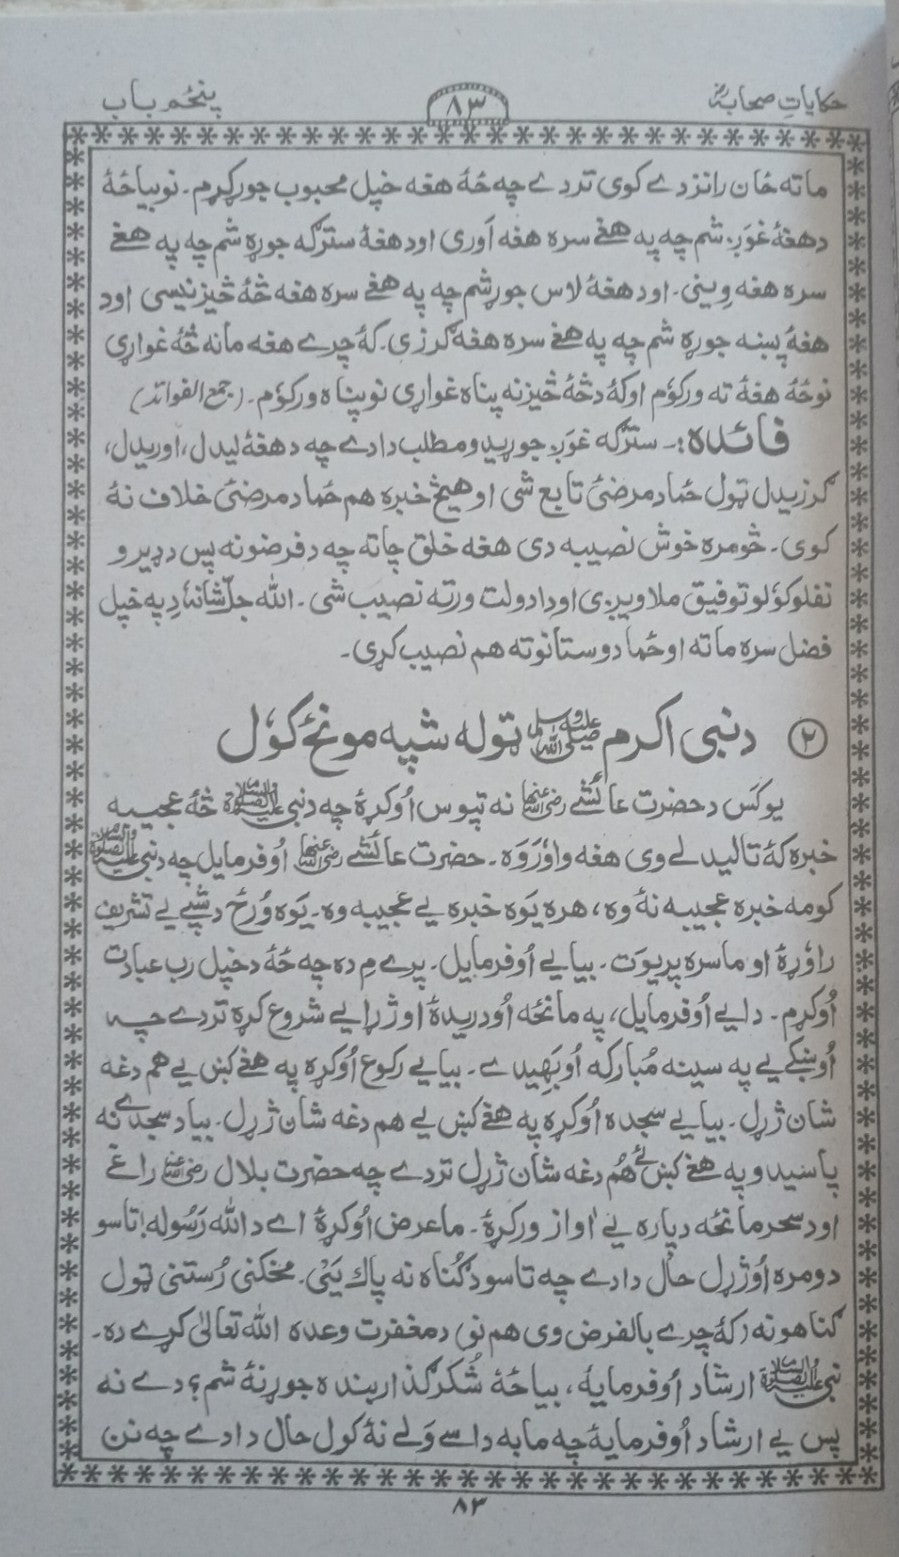 حکایاتِ صحابہؓ
۸۳
پنځم باب
ماته ځان رانزدے کوی تردے چه ځۀ هغه خپل محبوب جوړکړم۔ نوبیاځۀ
دهغۀ غوږ شم چه په هغے سره هغه آوری اودهغۀ سترګه جوړه شم چه په هغے
سره هغه وینی۔ اودهغۀ لاس جوړشم چه په هغے سره هغه څۀ څیزنیسی اود
هغۀ پښه جوړه شم چه په هغے سره هغه ګرزی۔ کۀ چرے هغه مانه څۀ غواړی
نوځۀ هغۀ ته ورکوم اوکۀ دڅۀ څیزنه پناه غواړی نوپناه ورکوم۔ (جمع الفوائد)
فائده :۔ سترګه غوږ جوړیدو مطلب دادے چه دهغۀ لیدل، اوریدل،
ګرزیدل ټول ځما دمرضیٔ تابع شی اوهیڅ خبره هم ځما دمرضیٔ خلاف نۀ
کوی۔ څومره خوش نصیبه دی هغه خلق چاته چه دفرضونه پس دډیرو
نفلوکولو توفیق ملاویږی اودادولت ورته نصیب شی۔ الله جلّ شانهٗ دِ په خپل
فضل سره ماته اوځما دوستانوته هم نصیب کړی۔
۲ دنبی اکرم ﷺ ټوله شپه مونځ کوَل
یوکس دحضرت عائشے رضی الله عنها نه تپوس اُوکړۀ چه دنبی علیه الصلوٰة څۀ عجیبه
خبره کۀ تالیدلے وی هغه واوروه۔ حضرت عائشے رضی الله عنها اُوفرمایل چه دنبی علیه الصلوٰة
کومه خبره عجیبه نۀ وه، هره یوه خبره یے عجیبه وه۔ یوه ورځ دشپے یے تشریف
راوړۀ او ماسره پریوت۔ بیایے اُوفرمایل۔ پرے مِ ده چه ځۀ دخپل رب عبادت
اُوکړم۔ دایے اُوفرمایل، په مانځه اُودریدۀ اوژړایے شروع کړه تردے چه
اُوښکے یے په سینه مُبارکه اُوبَهیدے۔ بیایے رکوع اُوکړه په هغے کښ یے هم دغه
شان ژړل۔ بیایے سجده اُوکړه په هغے کښ یے هم دغه شان ژړل۔ بیا دسجدے نه
پاسیدو په هغے کښ ئے هُم دغه شان ژړل تردے چه حضرت بلال رضی الله عنه راغے
اودسحرمانځه دپاره یے اٰواز ورکړۀ۔ ماعرض اُوکړۀ اے دالله رَسُوله! تاسو
دومره اُوژړل حال دادے چه تاسو دګناه نه پاک یَیٔ۔ مخکنی رُستنی ټول
ګناهونه (کۀ چرے بالفرض وی هم نو) دمغفرت وعده الله تعالیٰ کړے ده۔
نبی علیه الصلوٰة ارشاد اُوفرمایۀ، بیاځۀ شُکرګذار بنده جوړنۀ شم؟ دے نه
پس یے ارشاد اُوفرمایۀ چه مابه داسے وَلے نۀ کول حال دادے چه نن
۸۳